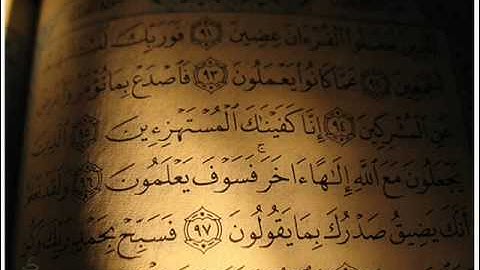 ٱلَّذِينَ جَعَلُوا۟ ٱلْقُرْءَانَ عِضِينَ ٩١ فَوَرَبِّكَ
أَجْمَعِينَ ٩٢ عَمَّا كَانُوا۟ يَعْمَلُونَ ٩٣ فَٱصْدَعْ بِمَا تُؤْمَرُ
عَنِ ٱلْمُشْرِكِينَ ٩٤ إِنَّا كَفَيْنَٰكَ ٱلْمُسْتَهْزِءِينَ ٩٥ ٱلَّذِينَ
يَجْعَلُونَ مَعَ ٱللَّهِ إِلَٰهًا ءَاخَرَ فَسَوْفَ يَعْلَمُونَ ٩٦ وَلَقَدْ
أَنَّكَ يَضِيقُ صَدْرُكَ بِمَا يَقُولُونَ ٩٧ فَسَبِّحْ بِحَمْدِ رَبِّكَ